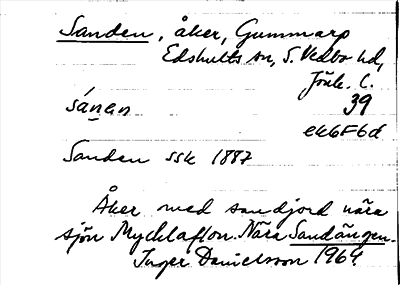 Sanden, åker, Gummarp
Edshults sn, S. Vedbo hd,
Jönk. l.
sánan 39
ek6F6d
Sanden ssk 1887
Åker med sandjord nära
sjön Mycklaflon. Nära Sandängen.
Inger Danielsson 1964